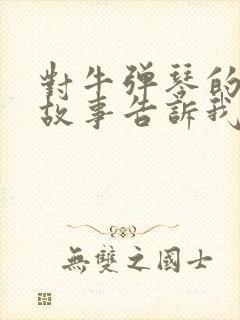 對牛弹琴的
故事告訴我
無雙之國士